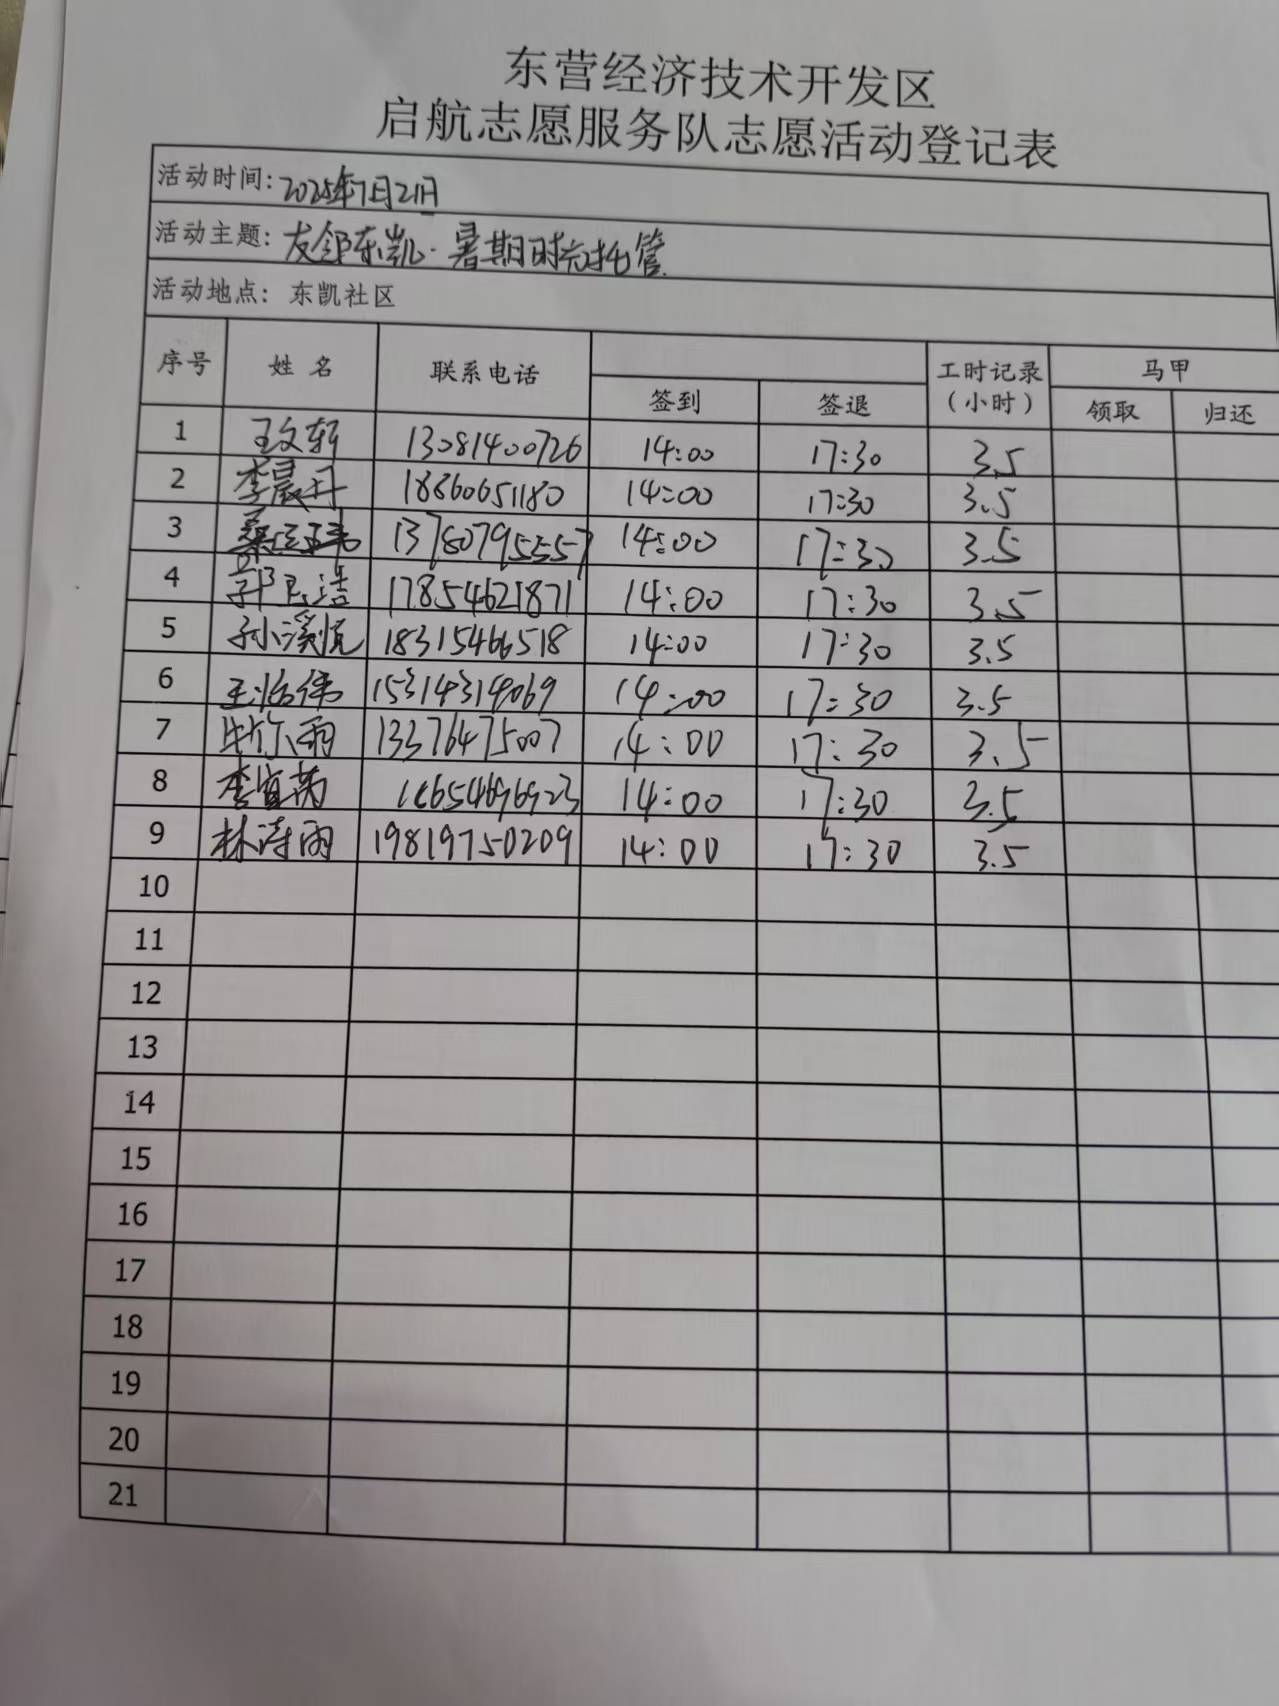 东营经济技术开发区
启航志愿服务队志愿活动登记表
活动时间: 2025年7月21日
活动主题: 友邻东凯·暑期时光托管
活动地点: 东凯社区
序号 姓名 联系电话 工时记录(小时) 马甲
签到 签退 领取 归还
1 王文轩 13081400726 14:00 17:30 3.5
2 李晨升 18860651180 14:00 17:30 3.5
3 13780795557 14:00 17:30 3.5
4 17854621871 14:00 17:30 3.5
5 孙溪悦 18315466518 14:00 17:30 3.5
6 15314319069 14:00 17:30 3.5
7 13376475007 14:00 17:30 3.5
8 李宜芮 14:00 17:30 3.5
9 林诗雨 19819750209 14:00 17:30 3.5
10
11
12
13
14
15
16
17
18
19
20
21